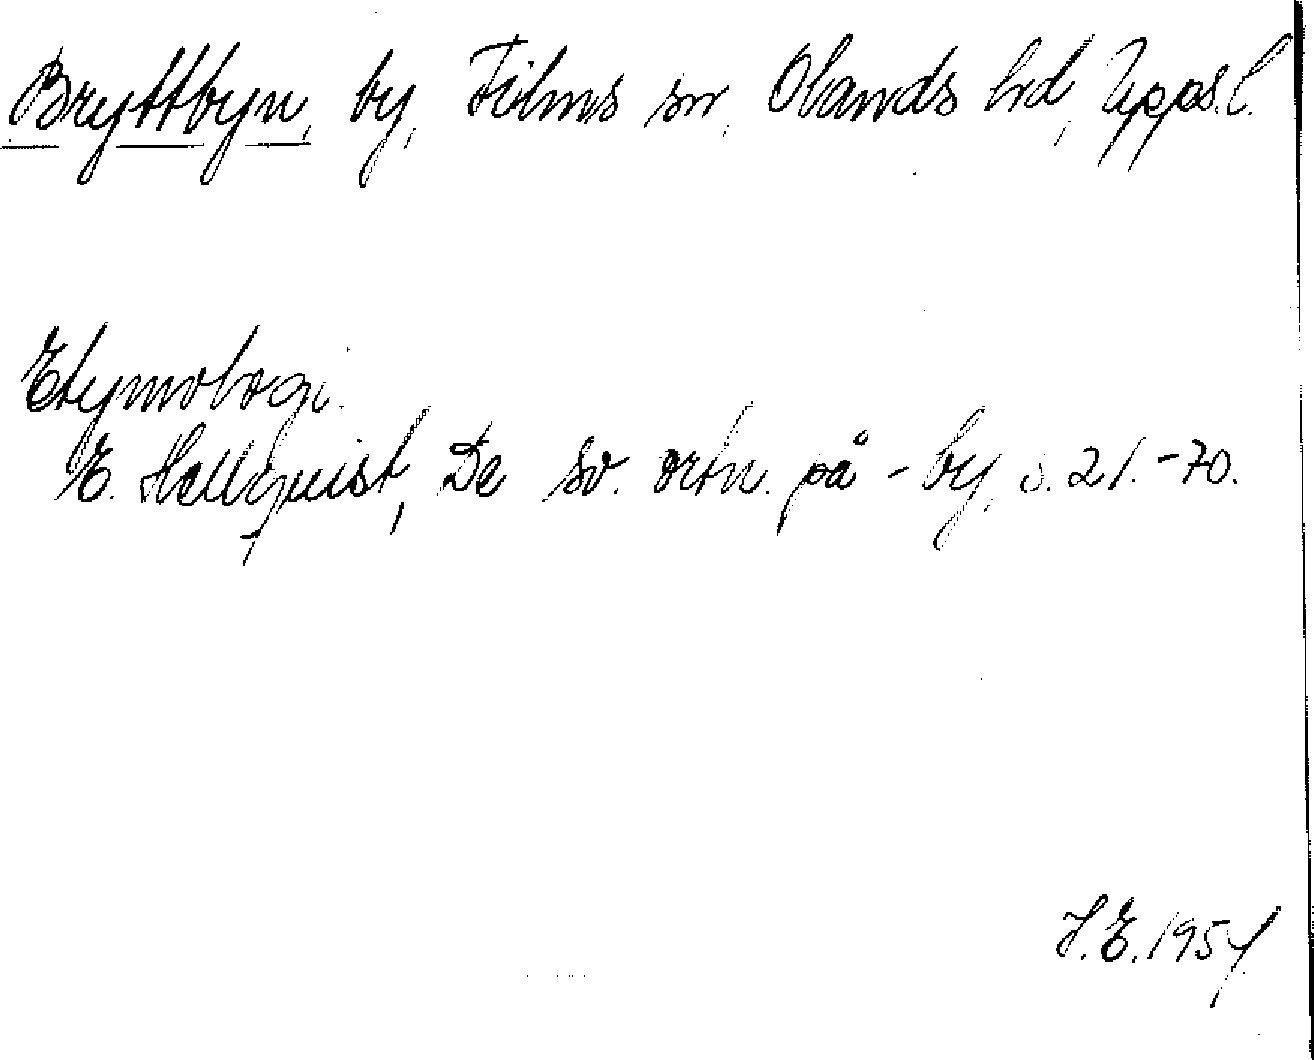 Bryttbyn, by, Films sn, Olands hd, Upps. l.
Etymologi.
E. Hellquist, De sv. ortn. på -by, s. 21.-70.
H.E. 1954